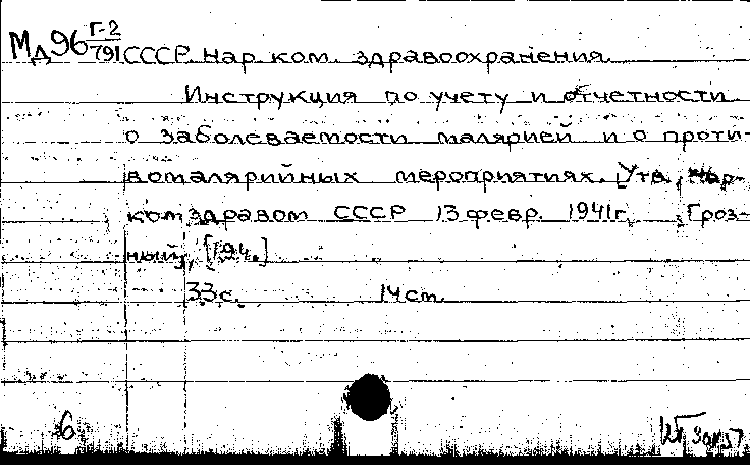 Мд96 Г-2/791 СССР. Нар. ком. здравоохранения.
Инструкция по учету и отчетности
о заболеваемости малярией и о проти-
вомалярийных мероприятиях. Утв. Нар-
комздравом СССР 13 февр. 1941г. Гроз-
ный, [194.]
33с. 14 см.
6